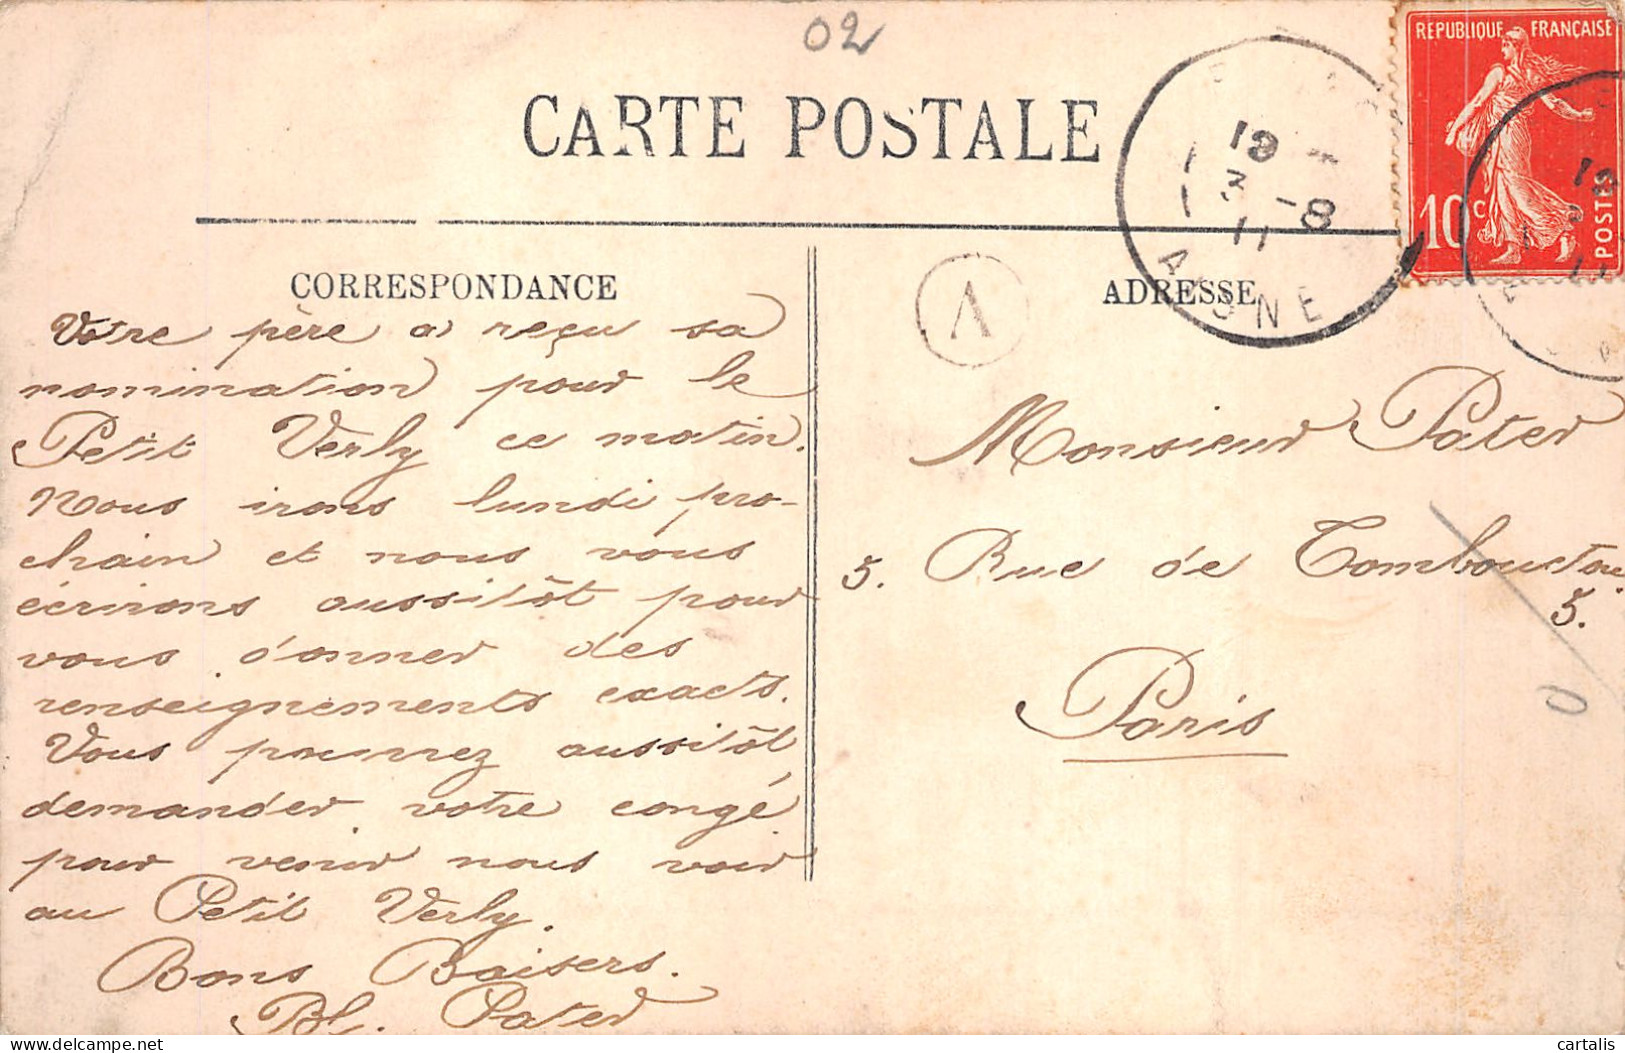 02
CARTE POSTALE
REPUBLIQUE FRANÇAISE
10c
POSTES
19
3 -8
11
AISNE
A
CORRESPONDANCE
ADRESSE
Votre père a reçu sa
nomination pour le
Petit Verly ce matin.
Nous irons lundi pro-
chain et nous vous
écrirons aussitôt pour
vous donner des
renseignements exacts.
Vous pourrez aussitôt
demander votre congé
pour venir nous voir
au Petit Verly.
Bons Baisers.
Bl. Pater
Monsieur Pater
5. Rue de Tombouctou
5.
Paris
delcampe.net
cartalis